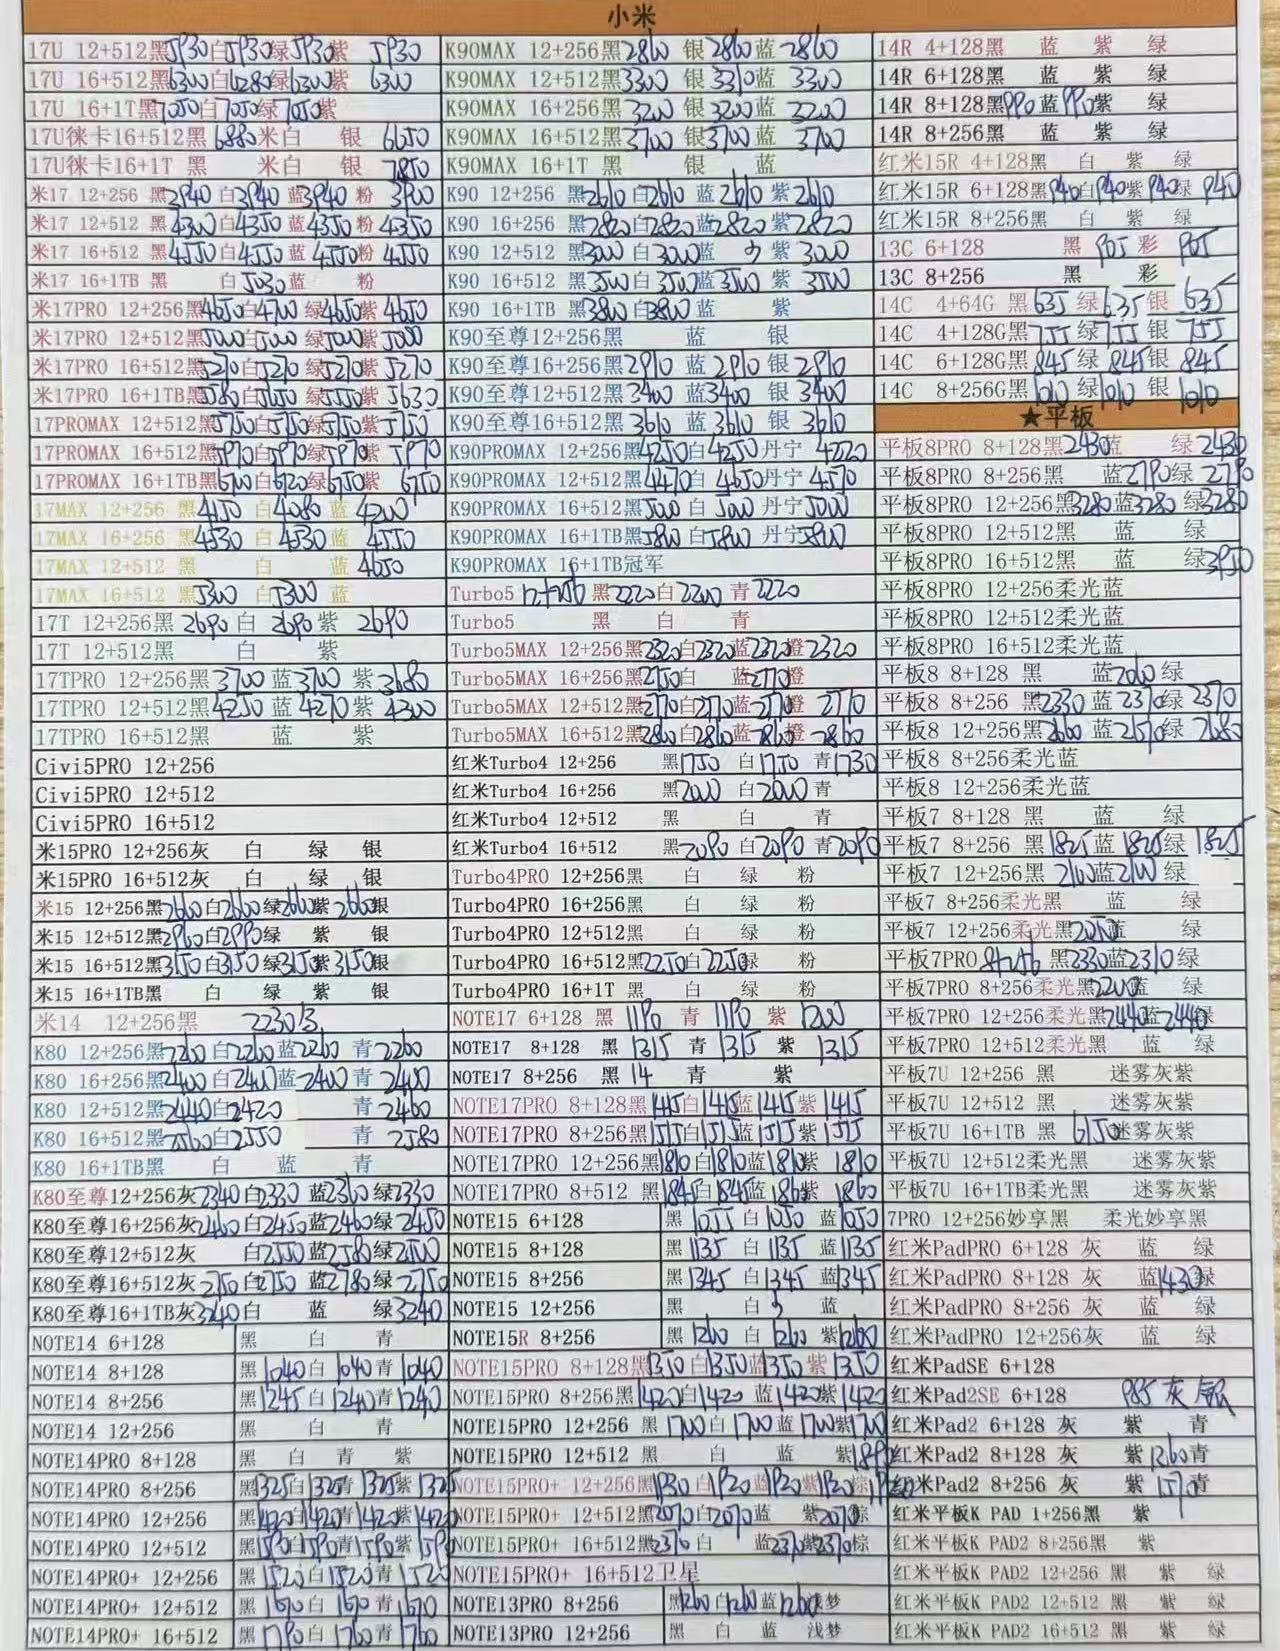 小米
17U 12+512黑5930白5930绿5930紫 5930
17U 16+512黑6300白6280绿6300紫 6300
17U 16+1T黑7050白7050绿7050紫
17U徕卡16+512黑 6880 米白 银 6650
17U徕卡16+1T 黑 米白 银 7850
米17 12+256 黑3940 白3940 蓝3940 粉 3900
米17 12+512 黑4300 白4350 蓝4350 粉 4350
米17 16+512 黑4550 白4550 蓝4550 粉4550
米17 16+1TB 黑 白5030蓝 粉
米17PRO 12+256黑4650白4700 绿4650紫 4650
米17PRO 12+512黑5000白5000 绿5000紫5000
米17PRO 16+512黑5270白5270 绿5270紫 5270
米17PRO 16+1TB黑5580白5650 绿5550紫 5630
17PROMAX 12+512黑5750白5750绿5750紫 5750
17PROMAX 16+512黑5970白5970绿5970紫 5970
17PROMAX 16+1TB黑6700白6720绿6750紫 6750
17MAX 12+256 黑4150 白4080 蓝 4200
17MAX 16+256 黑4530 白4530 蓝 4550
17MAX 12+512 黑 白 蓝 4650
17MAX 16+512 黑5300 白5300 蓝
17T 12+256黑 2690 白 2690 紫 2690
17T 12+512黑 白 紫
17TPRO 12+256黑 3700 蓝 3700 紫 3680
17TPRO 12+512黑4250 蓝 4270 紫 4300
17TPRO 16+512黑 蓝 紫
Civi5PRO 12+256
Civi5PRO 12+512
Civi5PRO 16+512
米15PRO 12+256灰 白 绿 银
米15PRO 16+512灰 白 绿 银
米15 12+256黑2660白2660绿2660紫 2660银
米15 12+512黑2960白2990绿 紫 银
米15 16+512黑3150白3150 绿3150紫3150银
米15 16+1TB黑 白 绿 紫 银
米14 12+256黑 2230
K80 12+256黑2260 白2260蓝2260 青 2260
K80 16+256黑2400 白2400蓝2400 青 2400
K80 12+512黑2440白2420 青 2460
K80 16+512黑2560白2550 青 2580
K80 16+1TB黑 白 蓝 青
K80至尊12+256灰2340白2330 蓝2360 绿2330
K80至尊16+256灰2460 白2450蓝2460绿2450
K80至尊12+512灰 白2550蓝2580绿2500
K80至尊16+512灰 2750 白2750 蓝2780 绿2750
K80至尊16+1TB灰3240白 蓝 绿3240
NOTE14 6+128 黑 白 青
NOTE14 8+128 黑1040白 1040 青1040
NOTE14 8+256 黑1245 白1240青1240
NOTE14 12+256 黑 白 青
NOTE14PRO 8+128 黑 白 青 紫
NOTE14PRO 8+256 黑1325白1325青1325紫1325
NOTE14PRO 12+256 黑1420白1420青1420紫1420
NOTE14PRO 12+512 黑1590白1590青1590紫 1590
NOTE14PRO+ 12+256 黑1520白1520青 1520
NOTE14PRO+ 12+512 黑1670 白 1670 青1670
NOTE14PRO+ 16+512 黑1790 白 1760青1760
K90MAX 12+256黑2860 银 2860 蓝 2860
K90MAX 12+512黑3300 银 3310 蓝 3300
K90MAX 16+256黑3200 银3200 蓝 3200
K90MAX 16+512黑3700 银3700 蓝 3700
K90MAX 16+1T 黑 银 蓝
K90 12+256 黑2610 白2610 蓝 2610 紫2610
K90 16+256 黑2820白2820 蓝2820 紫2820
K90 12+512 黑3000 白3000蓝 紫 3000
K90 16+512 黑3500 白3500蓝3500 紫 3500
K90 16+1TB 黑3800白3800 蓝 紫
K90至尊12+256黑 蓝 银
K90至尊16+256黑2910 蓝 2910 银 2910
K90至尊12+512黑3400 蓝3400 银 3400
K90至尊16+512黑3610 蓝3610 银 3610
K90PROMAX 12+256黑4250白4250 丹宁 4220
K90PROMAX 12+512黑4470白4650丹宁 4570
K90PROMAX 16+512黑5000 白 5000 丹宁 5000
K90PROMAX 16+1TB黑5800 白5800 丹宁5800
K90PROMAX 16+1TB冠军
Turbo5 12+256 黑2220白2200 青2220
Turbo5 黑 白 青
Turbo5MAX 12+256黑2320白2320蓝2320橙 2320
Turbo5MAX 16+256黑2750白 蓝2770橙
Turbo5MAX 12+512黑2770白2770蓝2770橙 2770
Turbo5MAX 16+512黑2860白2860蓝2860橙 2860
红米Turbo4 12+256 黑1750 白1750 青1730
红米Turbo4 16+256 黑2000 白2000 青
红米Turbo4 12+512 黑 白 青
红米Turbo4 16+512 黑2090 白2090 青2090
Turbo4PRO 12+256黑 白 绿 粉
Turbo4PRO 16+256黑 白 绿 粉
Turbo4PRO 12+512黑 白 绿 粉
Turbo4PRO 16+512黑2250白2250绿 粉
Turbo4PRO 16+1T 黑 白 绿 粉
NOTE17 6+128 黑 1190 青 1190 紫 1200
NOTE17 8+128 黑 1315 青 1315 紫 1315
NOTE17 8+256 黑 14 青 紫
NOTE17PRO 8+128黑1415白1415蓝1415紫1415
NOTE17PRO 8+256黑1515白1515蓝1515紫1515
NOTE17PRO 12+256黑1810白1810蓝1810紫 1810
NOTE17PRO 8+512 黑1845白1845蓝1860紫 1860
NOTE15 6+128 黑 1055 白 1050 蓝1050
NOTE15 8+128 黑 1135 白 1135 蓝1135
NOTE15 8+256 黑1345 白1345 蓝1345
NOTE15 12+256 黑 白 蓝
NOTE15R 8+256 黑1260 白 1260 紫1260
NOTE15PRO 8+128黑1350白1350蓝1350 紫1350
NOTE15PRO 8+256黑1420白1420 蓝1420紫1420
NOTE15PRO 12+256 黑 1700 白 1700 蓝 1700紫1700
NOTE15PRO 12+512 黑 白 蓝 紫
NOTE15PRO+ 12+256黑1930白1920蓝1920紫1920棕
NOTE15PRO+ 12+512黑2070白2070蓝 紫2070棕
NOTE15PRO+ 16+512黑2370白 蓝2370紫2370棕
NOTE15PRO+ 16+512卫星
NOTE13PRO 8+256 黑1260白1260蓝1260浅梦
NOTE13PRO 12+256 黑 白 蓝 浅梦
14R 4+128黑 蓝 紫 绿
14R 6+128黑 蓝 紫 绿
14R 8+128黑990蓝990紫 绿
14R 8+256黑 蓝 紫 绿
红米15R 4+128黑 白 紫 绿
红米15R 6+128黑940白940紫940绿 940
红米15R 8+256黑 白 紫 绿
13C 6+128 黑 905 彩 905
13C 8+256 黑 彩
14C 4+64G 黑635 绿635银 635
14C 4+128G黑755绿755 银 755
14C 6+128G黑845绿 845银 845
14C 8+256G黑1010绿1010 银 1010
★平板
平板8PRO 8+128黑2430蓝 绿2430
平板8PRO 8+256黑 蓝2790绿 2790
平板8PRO 12+256黑3280蓝3280 绿3280
平板8PRO 12+512黑 蓝 绿
平板8PRO 16+512黑 蓝 绿3950
平板8PRO 12+256柔光蓝
平板8PRO 12+512柔光蓝
平板8PRO 16+512柔光蓝
平板8 8+128 黑 蓝2060 绿
平板8 8+256 黑2330 蓝 2370绿 2370
平板8 12+256黑2660 蓝 2670绿 2680
平板8 8+256柔光蓝
平板8 12+256柔光蓝
平板7 8+128 黑 蓝 绿
平板7 8+256 黑1825蓝1825绿 1825
平板7 12+256黑 2100蓝2100 绿
平板7 8+256柔光黑 蓝 绿
平板7 12+256柔光黑2050蓝 绿
平板7PRO 8+256 黑2330蓝2310绿
平板7PRO 8+256柔光黑2200蓝 绿
平板7PRO 12+256柔光黑2440蓝2440绿
平板7PRO 12+512柔光黑 蓝 绿
平板7U 12+256 黑 迷雾灰紫
平板7U 12+512 黑 迷雾灰紫
平板7U 16+1TB 黑 6150迷雾灰紫
平板7U 12+512柔光黑 迷雾灰紫
平板7U 16+1TB柔光黑 迷雾灰紫
7PRO 12+256妙享黑 柔光妙享黑
红米PadPRO 6+128 灰 蓝 绿
红米PadPRO 8+128 灰 蓝1430绿
红米PadPRO 8+256 灰 蓝 绿
红米PadPRO 12+256灰 蓝 绿
红米PadSE 6+128
红米Pad2SE 6+128 985 灰 银
红米Pad2 6+128 灰 紫 青
红米Pad2 8+128 灰 紫1360青
红米Pad2 8+256 灰 紫1570青
红米平板K PAD 1+256黑 紫
红米平板K PAD2 8+256黑 紫
红米平板K PAD2 12+256 黑 紫 绿
红米平板K PAD2 12+512 黑 紫 绿
红米平板K PAD2 16+512 黑 紫 绿